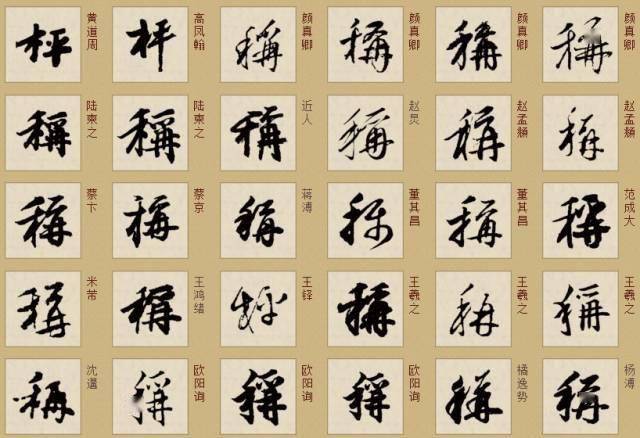 秤 黄道周
秤 高凤翰
稱 颜真卿
稱 颜真卿
稱 颜真卿
稱 颜真卿
稱 陆柬之
稱 陆柬之
稱 近人
稱 赵炅
稱 赵孟頫
稱 赵孟頫
稱 蔡卞
稱 蔡京
稱 蒋溥
称 董其昌
稱 董其昌
稱 范成大
稱 米芾
稱 王鸿绪
秤 王铎
稱 王羲之
稱 王羲之
稱 王羲之
稱 沈遘
稱 欧阳询
稱 欧阳询
稱 欧阳询
稱 橘逸势
稱 杨溥